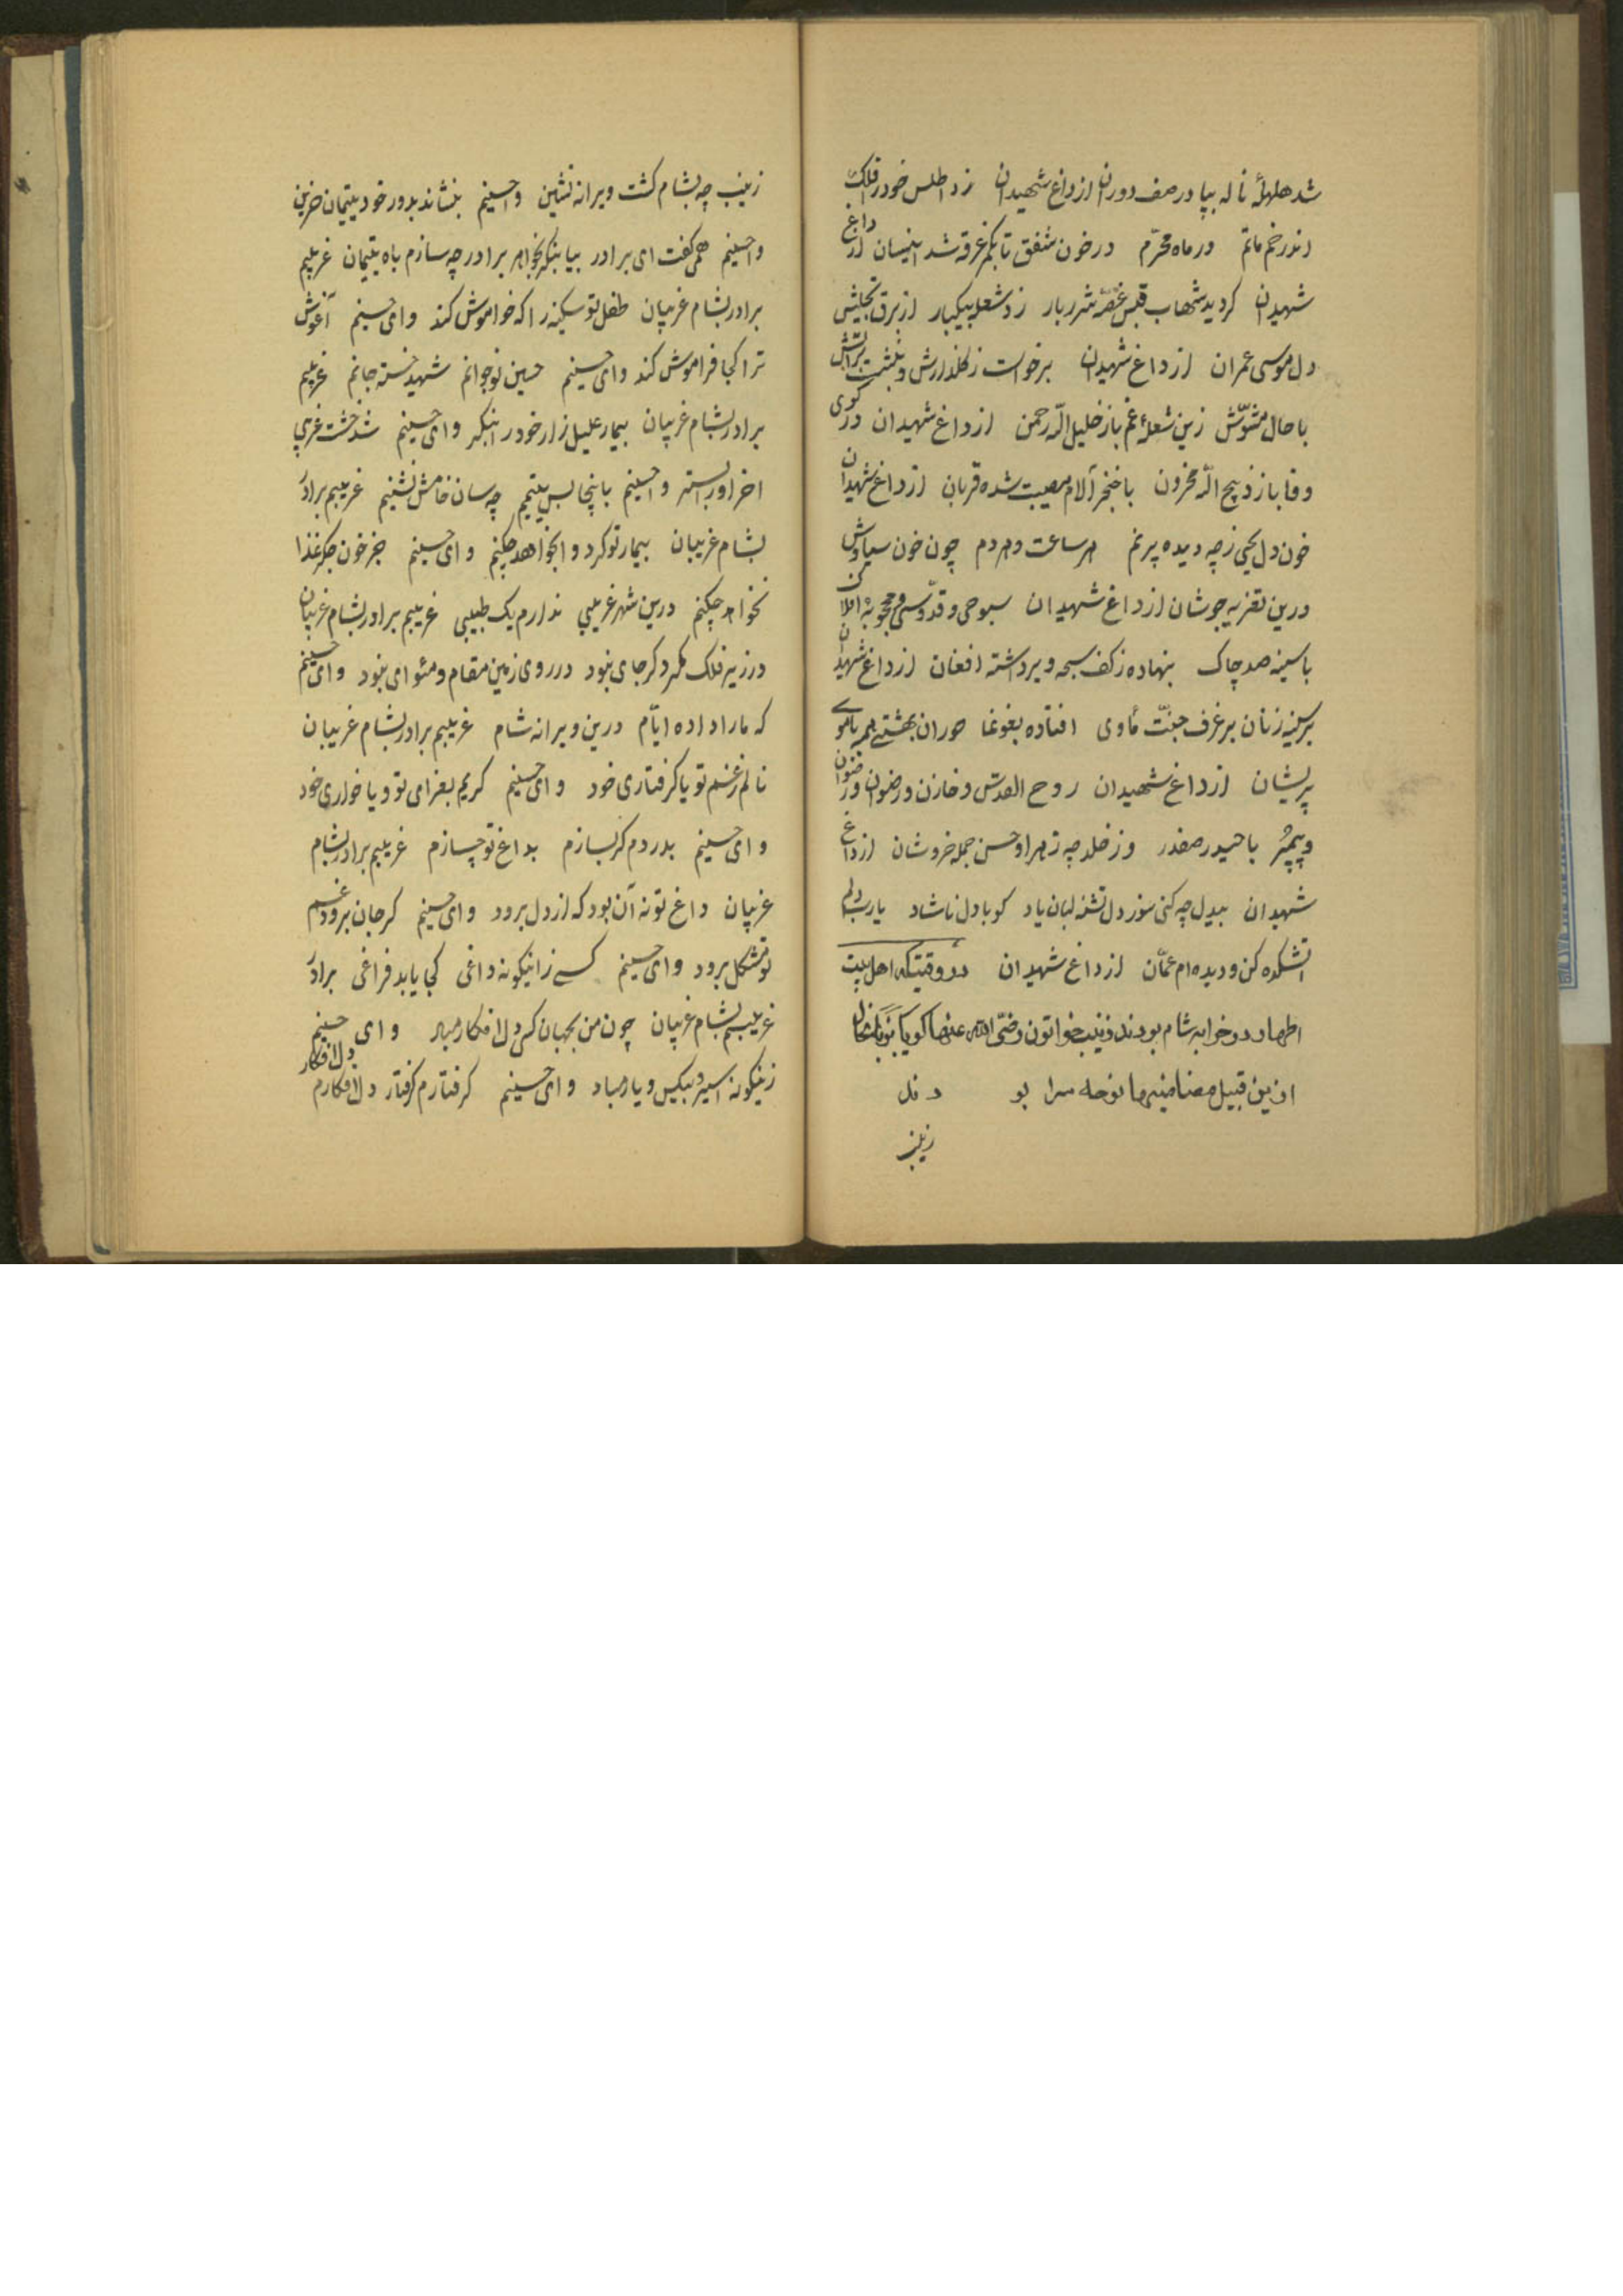 شد هلهلهٔ ناله بپا در صف دوران از داغ شهیدان زد اطلس خود را فلک
اندر خم ماتم در ماه محرّم در خون شفق تا بکمر غرقه شد اینسان از داغ
شهیدان کردید شهاب قبس غصّه شرربار زد شعله بیکبار از برق تجلیش
دل موسی عمران از داغ شهیدان برخواست ز کلذارش و بنشست بر آتش
با حال مشوّش زین شعلهٔ غم باز خلیل الّه رحمن از داغ شهیدان در کوی
وفا باز ذبیح الّه محزون با خنجر آلام مصیبت شده قربان از داغ شهیدان
خون دل یحیی ز چه دیده پرنم هر ساعت و هر دم چون خون سیاوش
درین تعزیه جوشان از داغ شهیدان سبوحی و قدّوسی و محجوبهٔ افلاک
با سینه صد چاک بنهاده ز کف سبحه و برداشته افغان از داغ شهیدان
بر سینه زنان بر غرف جنّت مأوی افتاده بغوغا حوران بهشتی همه با موی
پریشان از داغ شهیدان روح القدس و خازن و رضوان و
پیمبر با حیدر صفدر وز خلد چه زهرا و حسن جمله خروشان از داغ
شهیدان بیدل چه کنی سوز دل تشنه لبان یاد کو با دل ناشاد یارب دلم
آتشکده کن و دیده ام عمّان از داغ شهیدان در وقتیکه اهل بیت
اطهار در خرابه شام بودند زینب خواتون رضی الله عنها کویا
از این قبیل مضامینها نوحه سرا بو دند
زینب
زینب چه بشام کشت ویرانه نشین واحسینم بنشاند بدور خود یتیمان حزین
واحسینم همی کفت ای برادر بیا بنکر بخواهر برادر چه سازم باه یتیمان غریبم
برادر بشام غریبان طفل تو سکینه را که خواموش کند وای حسینم آغوش
ترا کجا فراموش کند وای حسینم حسین نوجوانم شهید خسته جانم غریبم
برادر بشام غریبان بیمار علیل زار خود را بنکر وای حسینم شد خشت غریبی
آخر او را بستر واحسینم باینجا بس یتیم چه سان خامش نشینم غریبم برادر
بشام غریبان بیمار تو کر دوا بخواهد چکنم وای حسینم جز خون جکر غذا
نخواهد چکنم درین شهر غریبی ندارم یک طبیبی غریبم برادر بشام غریبان
در زیر فلک مکر دکر جای نبود در روی زمین مقام و مئوای نبود وای حسینم
که مارا داده ایّام درین ویرانه شام غریبم برادر بشام غریبان
نالم ز غم تو یا کرفتاری خود وای حسینم کریم بعزای تو و یا خواری خود
وای حسینم بدردم کر بسازم بداغ تو چسازم غریبم برادر بشام
غریبان داغ تو نه آن بود که از دل برود وای حسینم کر جان برود غم
تو مشکل برود وای حسینم کسی زاینکونه داغی کجا یابد فراغی برادر
غریبم بشام غریبان چون من بجهان کسی دل افکار مباد وای حسینم
زینکونه اسیر و بیکس و یار مباد وای حسینم کرفتارم کرفتار دل افکارم دل افکار